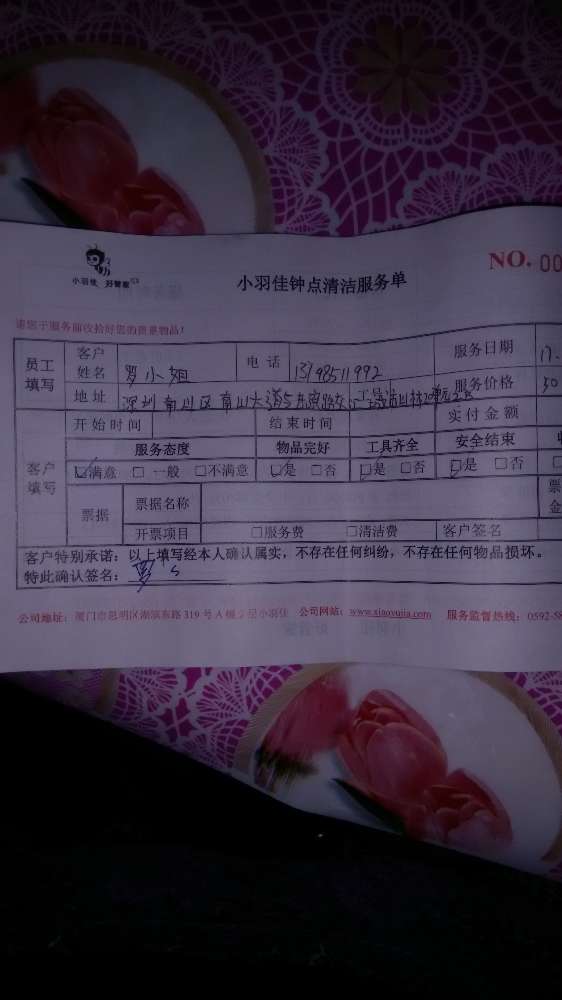 小羽佳 好管家
小羽佳钟点清洁服务单
NO. 00
请您于服务前收拾好您的贵重物品!
员工填写 客户姓名 罗小姐 电话 13798511992 服务日期 17.
地址 深圳南山区南山大道与 服务价格 30
客户填写 开始时间 结束时间 实付金额
服务态度 物品完好 工具齐全 安全结束
☑满意 □一般 □不满意 ☑是 □否 ☑是 □否 ☑是 □否
票据 票据名称 票
开票项目 □服务费 □清洁费 客户签名 金
客户特别承诺：以上填写经本人确认属实，不存在任何纠纷，不存在任何物品损坏。
特此确认签名：罗
公司地址：厦门市思明区湖滨东路 319 号 A 幢 2 层小羽佳 公司网站：www.xiaoyujia.com 服务监督热线：0592-58